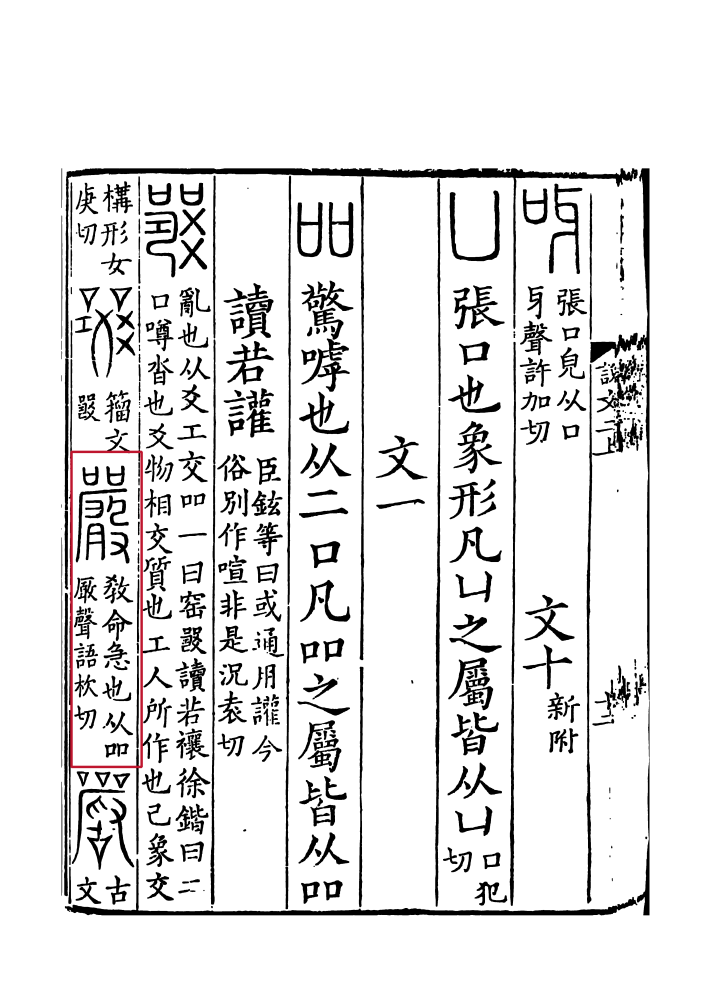 說文二上
呀
張口皃从口
牙聲許加切
文十
新附
凵
張口也象形凡凵之屬皆从凵
口犯
切
文一
吅
驚嘑也从二口凡吅之屬皆从吅
讀若讙
臣鉉等曰或通用讙今
俗別作喧非是況袁切
𤕦
亂也从爻工交吅一曰窑𤕦讀若禳徐鍇曰二
口噂沓也爻物相交質也工人所作也己象交
構形女
庚切
籀文
𤕦
嚴
敎命急也从吅
厰聲語杴切
古
文